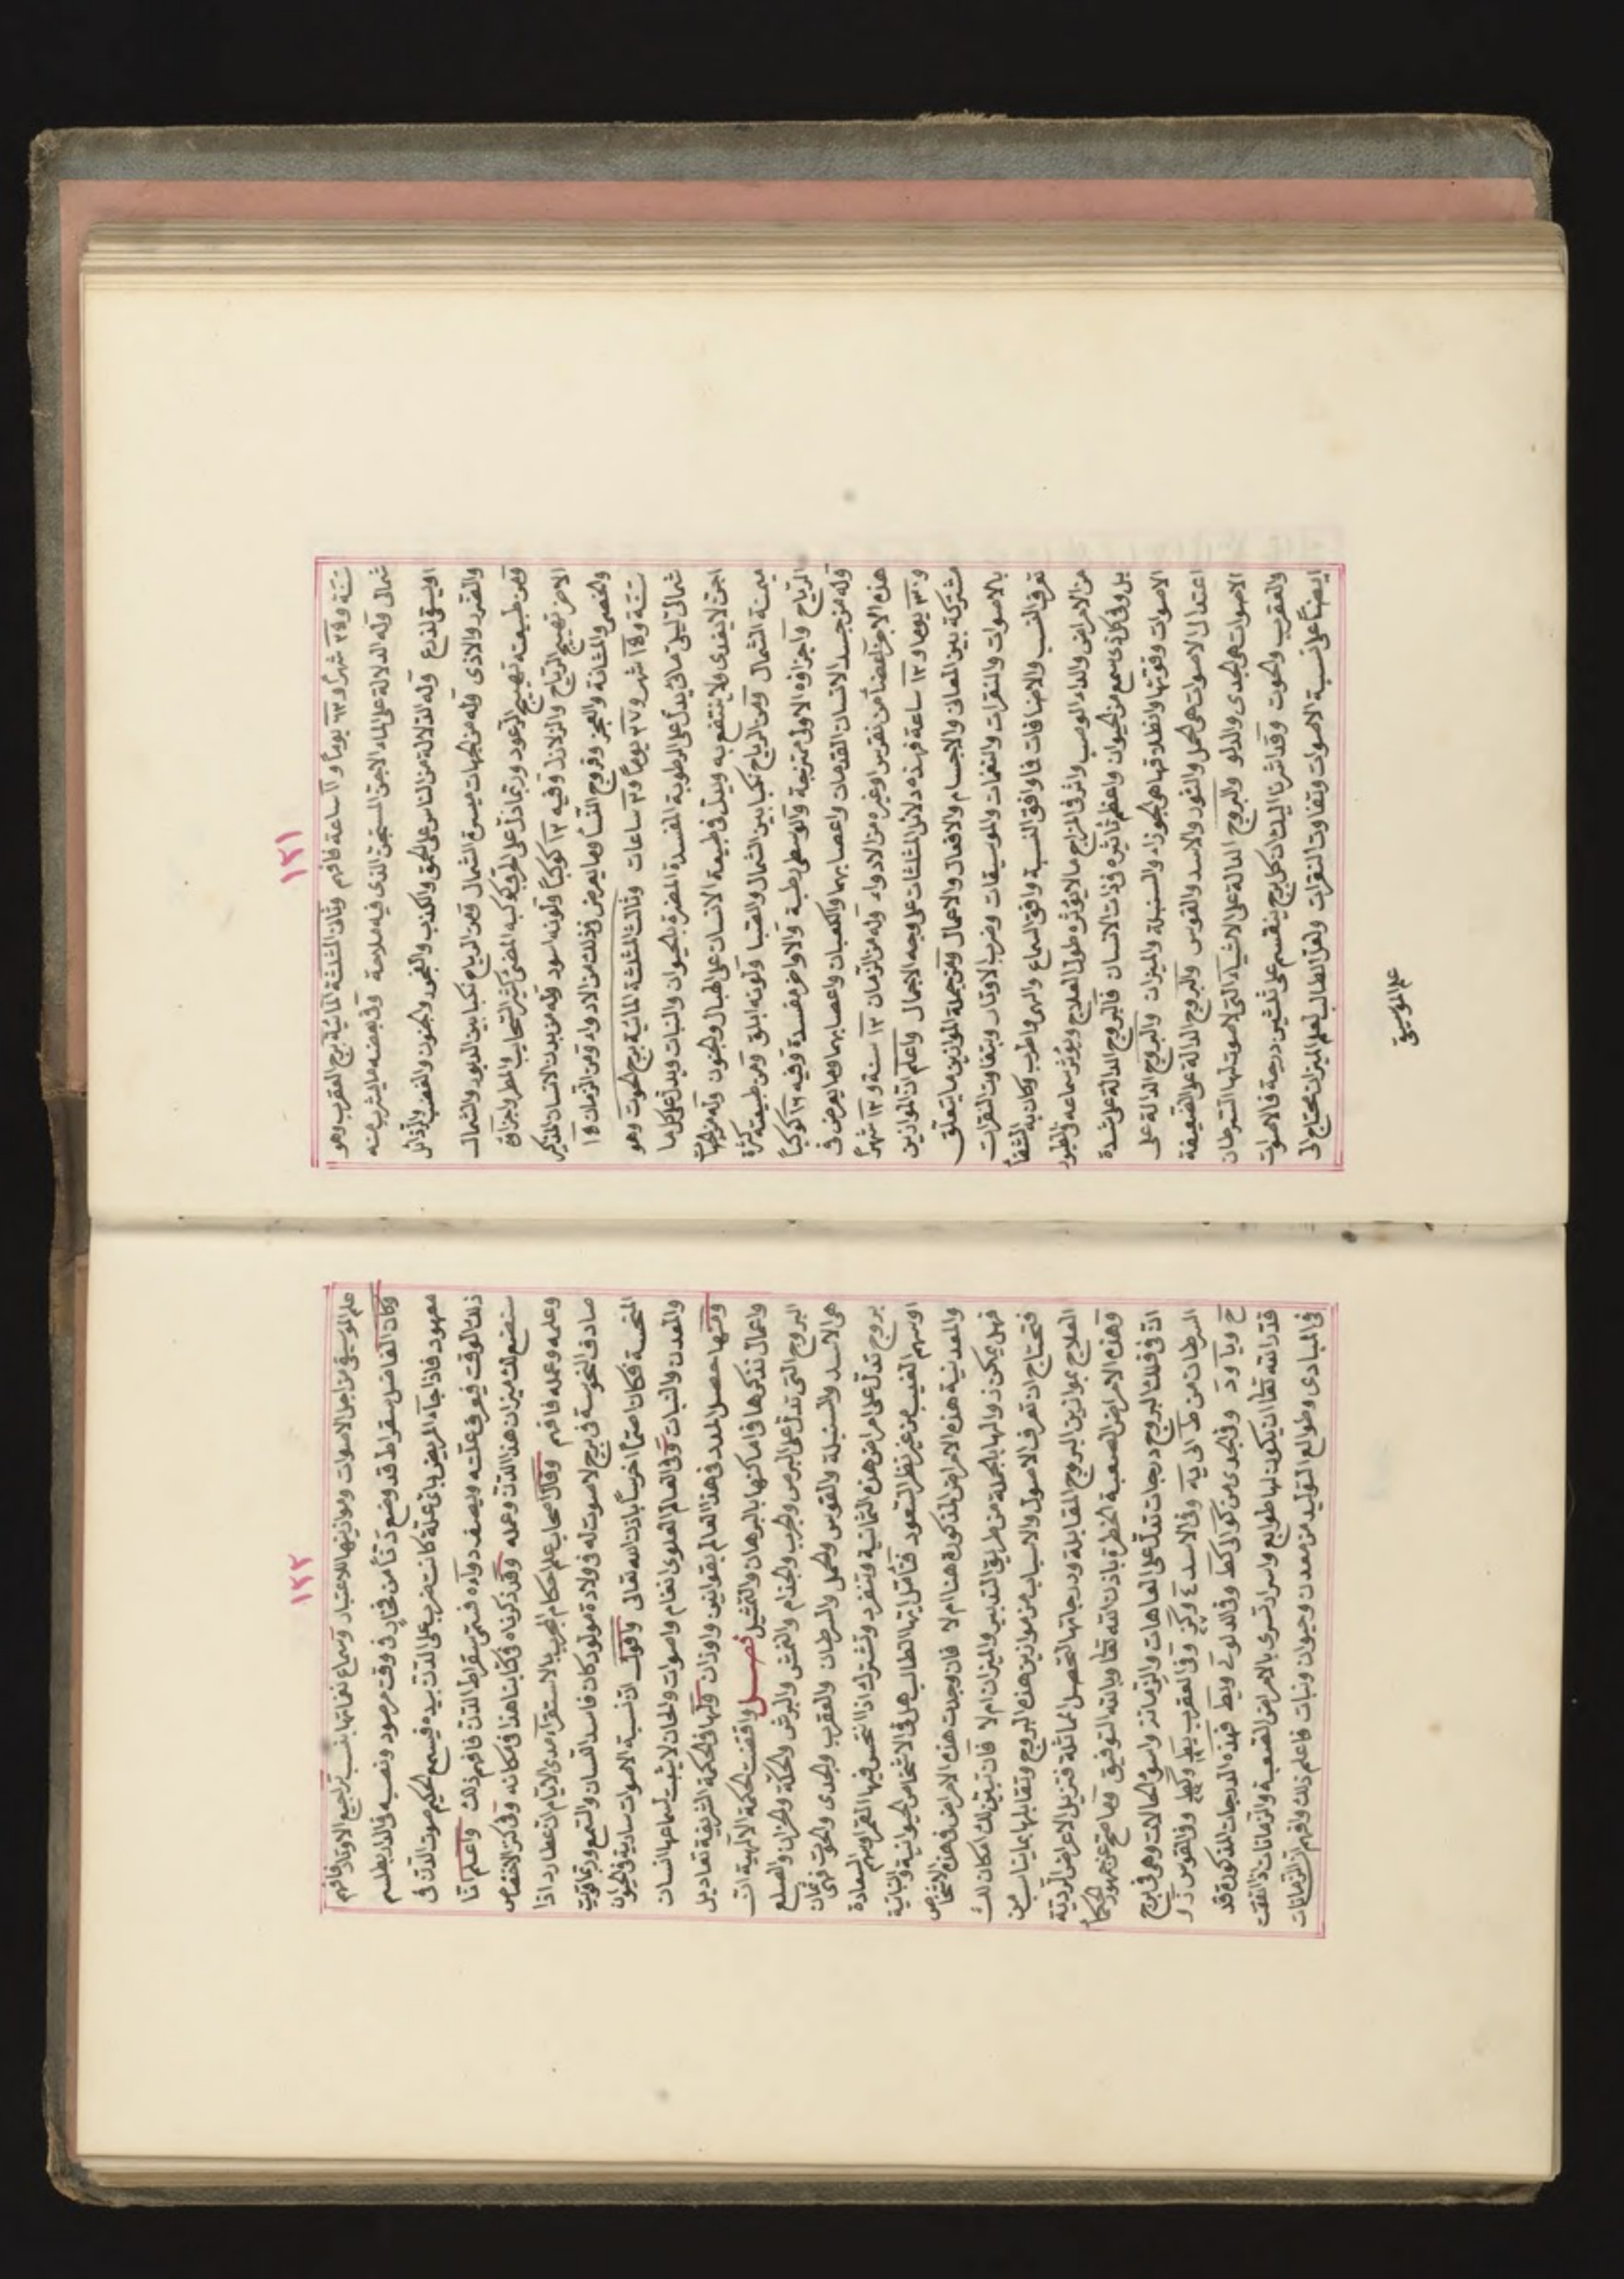 ١٢١
ستة و٣٤ شهراً و٦٣ يوماً و١١ ساعة فافهم وثاني المثلثة المائية برج العقرب وهو
شمالي وله الدلالة على الماء الاجن المسجن الذي فيه ملاحة وفي بعضه ما يشرب منه
ويسقى الزرع وله الدلالة من الناس على الحمق والكذب والفجور والجنون والغضب
والغدر والاذى وله من الجهات ميسرة الشمال ومن الرياح نكبا بين الدبور والشمال
ومن طبيعته تهييج الرعود وربما دل على الحرق كوكبه المضئ كثير السحاب والمطر واجزاؤه
الاخر تهييج الرياح والزلازل وفيه ٢١ كوكباً ولونه اسود وله من بدن الانسان المذاكير
والخصى والمثانة والعجز وفروج النساء وما يعرض في ذلك من الادواء ومن الزمان ١٥
ستة و١٥ شهر و٣٧ يوماً و٣ ساعات وثالث المثلثة المائية برج الحوت وهو
شمالي ليلي مائي يدل على الرطوبة المفسدة المضرة بالحيوان والنبات ويدل على كل ما
اجن لا يغذى ولا ينتفع به ويدل في طبيعة الانسان على الخبال والجنون وله من الجهات
ميمنة الشمال ومن الرياح نكبا بين الشمال والصبا ولونه ابلق ومن طبيعته كثرة
الرياح واجزاؤه الاولى ممتزجة والوسطى رطبة والاواخر مفسدة وفيه كوكباً
وله من جسد الانسان القدمان واعصابهما والكعبان واعصابهما وما يعرض في
هذه الاجزاء ايضاً من نقرس او غيره من الادواء وله من الزمان ١٢ سنة و١٢ شهراً
و٣٠ يوماً و١٢ ساعة فهذه دلائل المثلثات على وجه الاجمال واعلم ان الموازين
مشتركة بين المعاني والاجسام والافعال والاعمال ومن جملة الموازين ما يتعلق
بالاصوات والنقرات والنغمات والموسيقات وضرب الاوتار وبتفاوت النقرات
تعرف النسب والاضافات فما وافق النسبة وافق السماع والهى واطرب وكان به الشفاء
من الامراض والداء الوصب واثر في المزاج ما لا يؤثره طول العلاج ويؤثر سماعه في الطيور
بل وفي كل ذي سمع من الحيوان واعظم تاثيره في ذات الانسان فالبروج الدالة على شدة
الاصوات وقوتها وانطلاقها هي الجوزاء والسنبلة والميزان والبروج الدالة على
اعتدال الاصوات هي الحمل والثور والاسد والقوس والبروج الدالة على الضعيفة
الاصوات هي الجدي والدلو والبروج الدالة على الاشياء التي لا صوت لها السرطان
والعقرب والحوت وقد اشرنا اليك ان كل برج ينقسم على ثلثين درجة فالاصوات
ايضاً على نسبة الاصوات وتفاوت النقرات ولعل الطالب لعلم الميزان يحتاج الى
علم الموسيقى
١٢٢
علم الموسيقى من اجل الاصوات وموازينها للاعتبار وسماع نغماتها بنسب تراجيع الاوتار فافهم
وكان الفاضل سقراط قد وضع دناً من فخار في وقت مرصود ونصبه في الماء بطلسم
معهود فاذا جاءه المريض باي علة كانت ضرب على الدن بيده فيسمع الحكيم صوت الدن في
ذلك الوقت فيعرف علته ويصف دواءه فسمى سقراط الدن فافهم ذلك واعلم انا
سنضع لك ميزان هذا الدن وعمله وقد ذكرناه في كتابنا هذا في مكانه وفي كنز الاختصاص
وعلمه وعمله فافهم وقال اصحاب علم احكام النجوم بالاستقراء مدى الايام ان عطارد اذا
صادف النحوسة في برج لا صوت له في ولادة مولود كان فاسد اللسان والسمع وربما قويت
المنحسة فكان اصماً اخرساً باذن الله تعالى واقول ان نسبة الاصوات سارية في الحيوان
والمعدن والنبات وفي العالم العلوي انغام واصوات والحان لا يثبت لسماعها انسان
ومنها حصل المدد في هذا العالم بقوانين واوزان ولها في الحكمة الشريفة تعاديل
واعمال نذكرها في اماكنها بالبرهان والتمثيل فصل واقتضت الحكمة الالهية ان
البروج التي تدل على البرص والجرب والجذام والنمش والبرش والحكة والحزاز والصلع
هي الاسد والسنبلة والقوس والحمل والسرطان والعقرب والجدي والحوت فهي ثمان
بروج تدل على امراض هذه الثمانية وتنفرد وتشترك اذا انتحس فيها القمر او سهم السعادة
او سهم الغيب من غير نظر السعود فتأمل ايها الطالب هل في الاشخاص الحيوانية والنباتية
والمعدنية هذه الامراض المذكورة هنا ام لا فان وجدت هذه الامراض في هذه الاشخاص
فهل يمكن زوالها بالجملة من طريق التدبير والميزان ام لا فان تبين لك امكان ذلك
فتحتاج ان تعرف الاصول والاسباب من موازين هذه البروج وتقابلها بما يناسب من
العلاج بموازين البروج المقابلة ودرجاتها لتحصل المماثلة فتزيل الاعراض الردية
وهذه الامراض الصعبة الخطرة باذن الله تعالى وبالله التوفيق ومما صح عن جمهور الحكماء
ان في فلك البروج درجات تدل على العاهات والزمانة وسوء الحالات وهي في برج
السرطان من ط الى يه وفي الاسد وفي العقرب وفي القوس
وفي الجدي من كو الى كط وفي الدلو ويط فهذه الدرجات المذكورة قد
قدر الله تعالى ان يكون لها طوابع واسرار تسري بالامراض الصعبة والزمانات اذا اتفقت
في المبادى وطوالع التوليد من معدن وحيوان ونبات فاعلم ذلك وافهم ان الزمانات